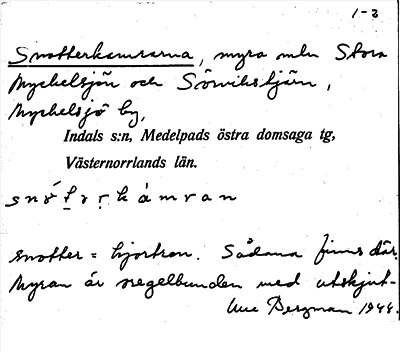 1-2
Snotterkamrarna, myra mln Stora
Myckelsjön och Sörvikstjärn,
Myckelsjö by,
Indals s:n, Medelpads östra domsaga tg,
Västernorrlands län.
snotter = hjortron. Sådana finns där.
Myran är oregelbunden med utskjut-
Uno Bergman 1944.